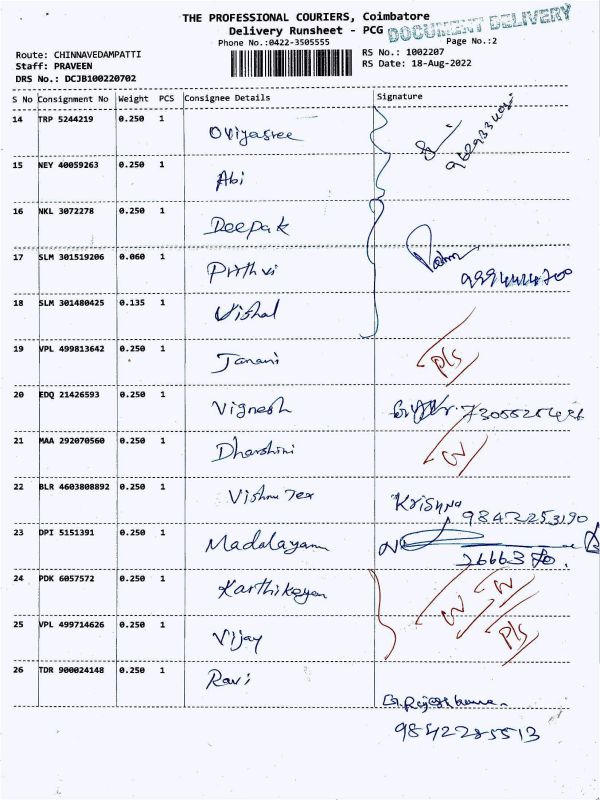 THE PROFESSIONAL COURIERS, Coimbatore
Delivery Runsheet - PCG
DOCUMENT DELIVERY
Phone No.:0422-3505555
Page No.:2
Route: CHINNAVEDAMPATTI
Staff: PRAVEEN
DRS No.: DCJB100220702
RS No.: 1002207
RS Date: 18-Aug-2022
S No Consignment No Weight PCS Consignee Details Signature
14 TRP 5244219 0.250 1 Oviyasree
15 NEY 40059263 0.250 1 Abi
16 NKL 3072278 0.250 1 Deepak
17 SLM 301519206 0.060 1 Prithvi
18 SLM 301480425 0.135 1 Vishal
19 VPL 499813642 0.250 1 Janani
20 EDQ 21426593 0.250 1 Vignesh
21 MAA 292070560 0.250 1 Dharshini
22 BLR 4603808892 0.250 1 Vishnu Tex Krishna
9842253190
23 DPI 5151391 0.250 1
24 PDK 6057572 0.250 1 Karthikeyan
25 VPL 499714626 0.250 1 Vijay
26 TDR 900024148 0.250 1 Ravi